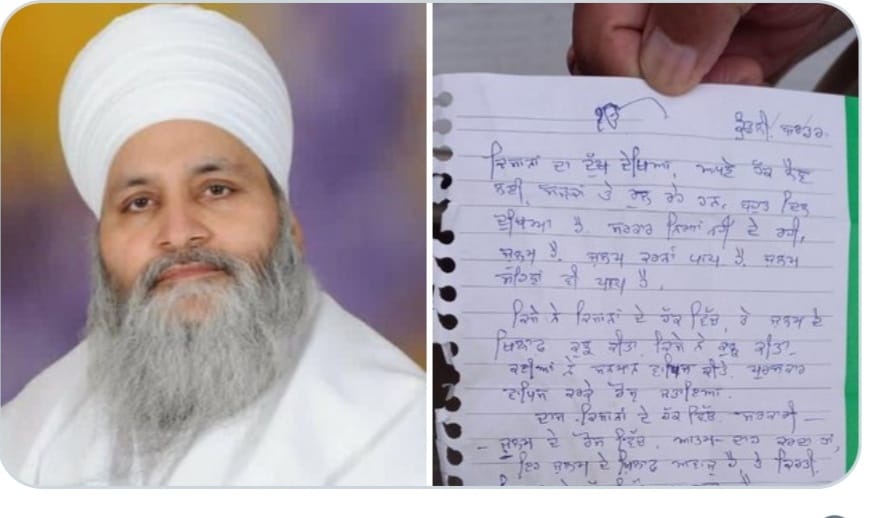 ੴ
ਕੁੰਡਲੀ ਬਾਰਡਰ.
ਕਿਸਾਨਾਂ ਦਾ ਦੁੱਖ ਦੇਖਿਆ, ਆਪਣੇ ਹੱਕ ਲੈਣ
ਲਈ, ਸੜਕਾਂ ਤੇ ਰੁਲ ਰਹੇ ਹਨ, ਬਹੁਤ ਦਿਲ
ਦੁਖਿਆ ਹੈ. ਸਰਕਾਰ ਨਿਆਂ ਨਹੀਂ ਦੇ ਰਹੀ,
ਜੁਲਮ ਹੈ. ਜੁਲਮ ਕਰਨਾ ਪਾਪ ਹੈ. ਜੁਲਮ
ਸਹਿਣਾ ਵੀ ਪਾਪ ਹੈ.
ਕਿਸੇ ਨੇ ਕਿਸਾਨਾਂ ਦੇ ਹੱਕ ਵਿੱਚ, ਤੇ ਜੁਲਮ ਦੇ
ਖਿਲਾਫ ਕੁਝ ਕੀਤਾ, ਕਿਸੇ ਨੇ ਕੁਝ ਕੀਤਾ.
ਕਈਆਂ ਨੇ ਸਨਮਾਨ ਵਾਪਿਸ ਕੀਤੇ. ਪੁਰਸਕਾਰ
ਵਾਪਿਸ ਕਰਕੇ ਰੋਸ ਜਤਾਇਆ.
ਦਾਸ ਕਿਸਾਨਾਂ ਦੇ ਹੱਕ ਵਿੱਚ ਸਰਕਾਰੀ —
- ਜੁਲਮ ਦੇ ਰੋਸ ਵਿੱਚ, ਆਤਮ-ਦਾਹ ਕਰਦਾ ਹਾਂ,
ਇਹ ਜੁਲਮ ਦੇ ਖਿਲਾਫ ਆਵਾਜ਼ ਹੈ, ਤੇ ਕਿਰਤੀ